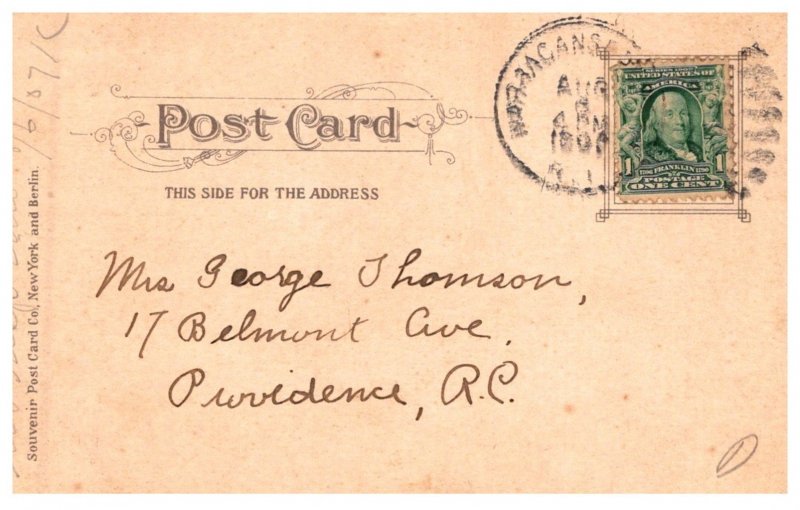 Post Card
THIS SIDE FOR THE ADDRESS
NARRAGANS
AUG
R.I.
SERIES 1902
UNITED STATES OF
AMERICA
1 1706 FRANKLIN 1790 1
POSTAGE
ONE CENT
Mrs George Thomson,
17 Belmont Ave.
Providence, R.I.
Souvenir Post Card Co., New York and Berlin.